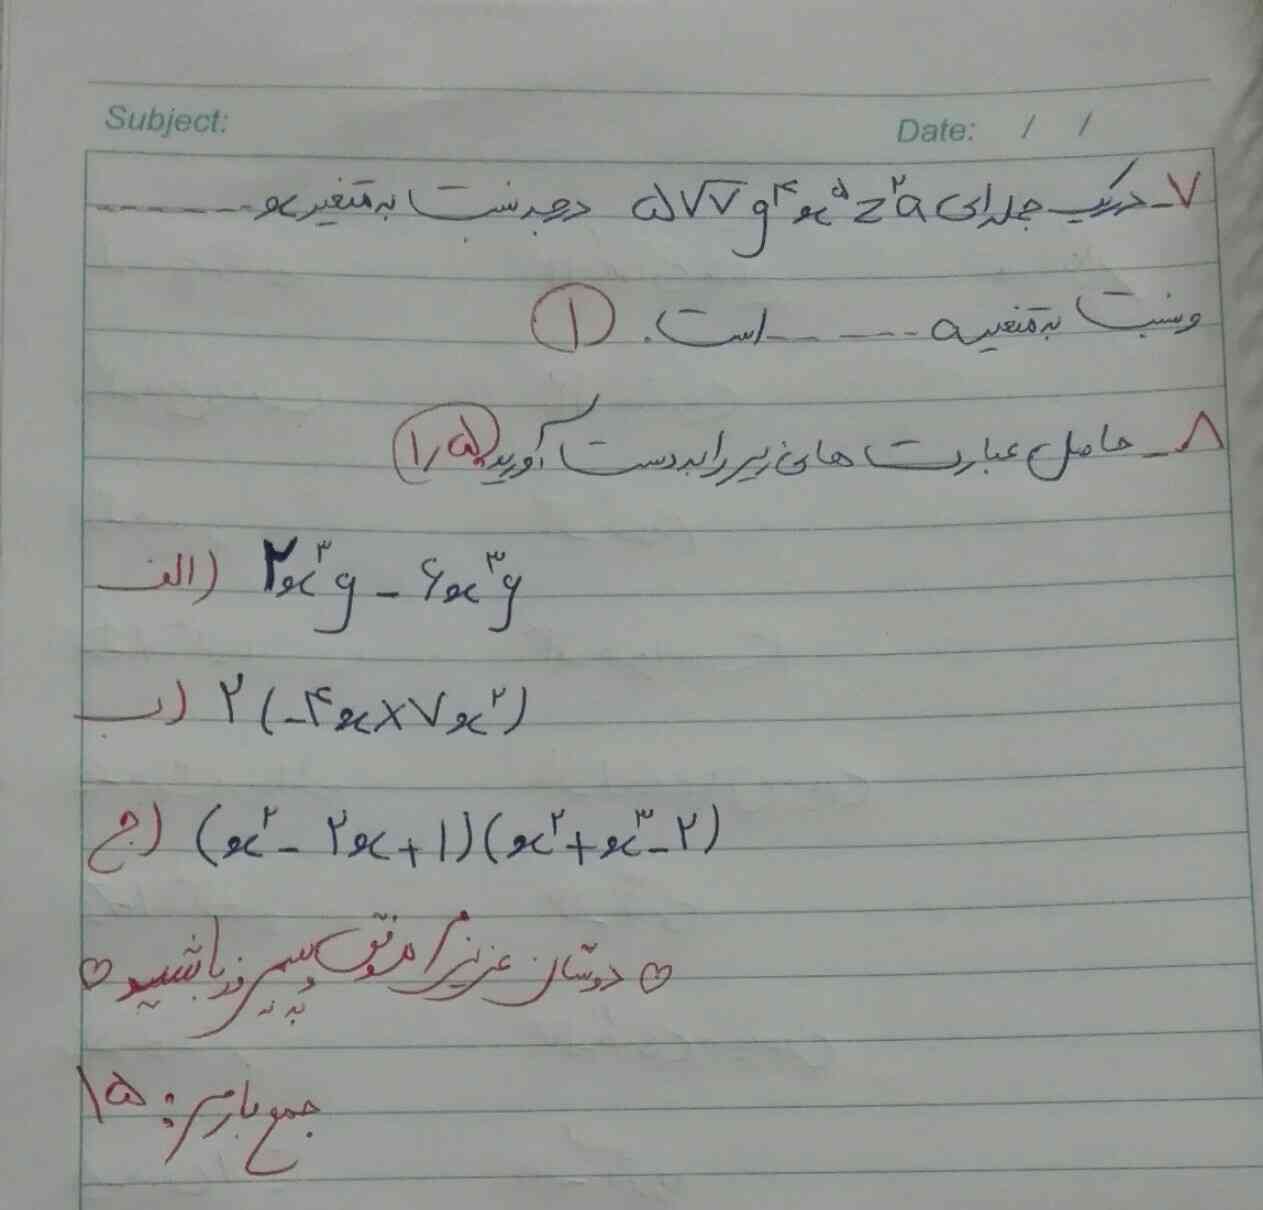 Subject: Date: / /
۷- در یک جمله‌ای ۵√۷ y⁴x⁵z²a درجه نسبت به متغیر x ------
و نسبت به متغیر a ------ است. ①
۸- حاصل عبارت های زیر را به دست آورید. ۱٫۵
الف) ۲x³y - ۶x³y
ب) ۲(-۴x×۷x²)
ج) (x²-۲x+۱)(x²+x³-۲)
♡ دوستان عزیزم موفق و پیروز باشید ♡
جمع بارم: ۱۵